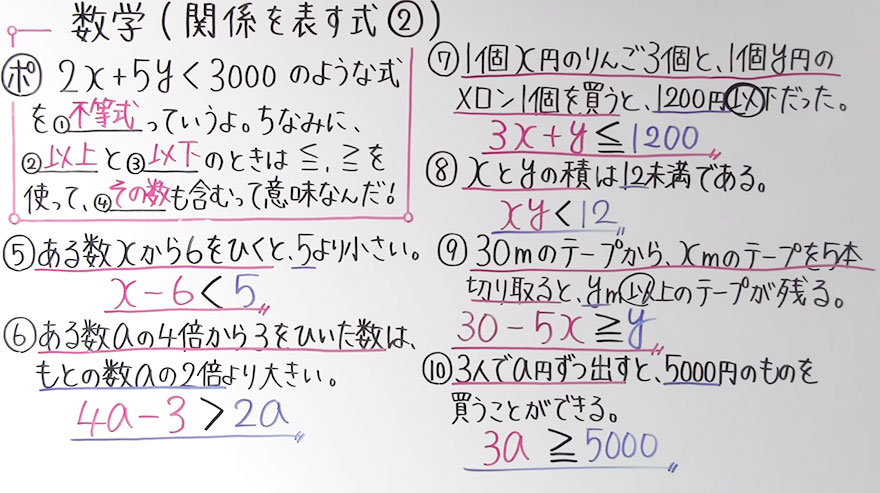 数学(関係を表す式②)
ポ 2x+5y<3000のような式
を①不等式っていうよ。ちなみに、
②以上と③以下のときは≦,≧を
使って、④その数も含むって意味なんだ!
⑤ある数xから6をひくと、5より小さい。
x-6<5
⑥ある数aの4倍から3をひいた数は、
もとの数aの2倍より大きい。
4a-3>2a
⑦1個x円のりんご3個と、1個y円の
メロン1個を買うと、1200円以下だった。
3x+y≦1200
⑧xとyの積は12未満である。
xy<12
⑨30mのテープから、xmのテープを5本
切り取ると、ym以上のテープが残る。
30-5x≧y
⑩3人でa円ずつ出すと、5000円のものを
買うことができる。
3a≧5000